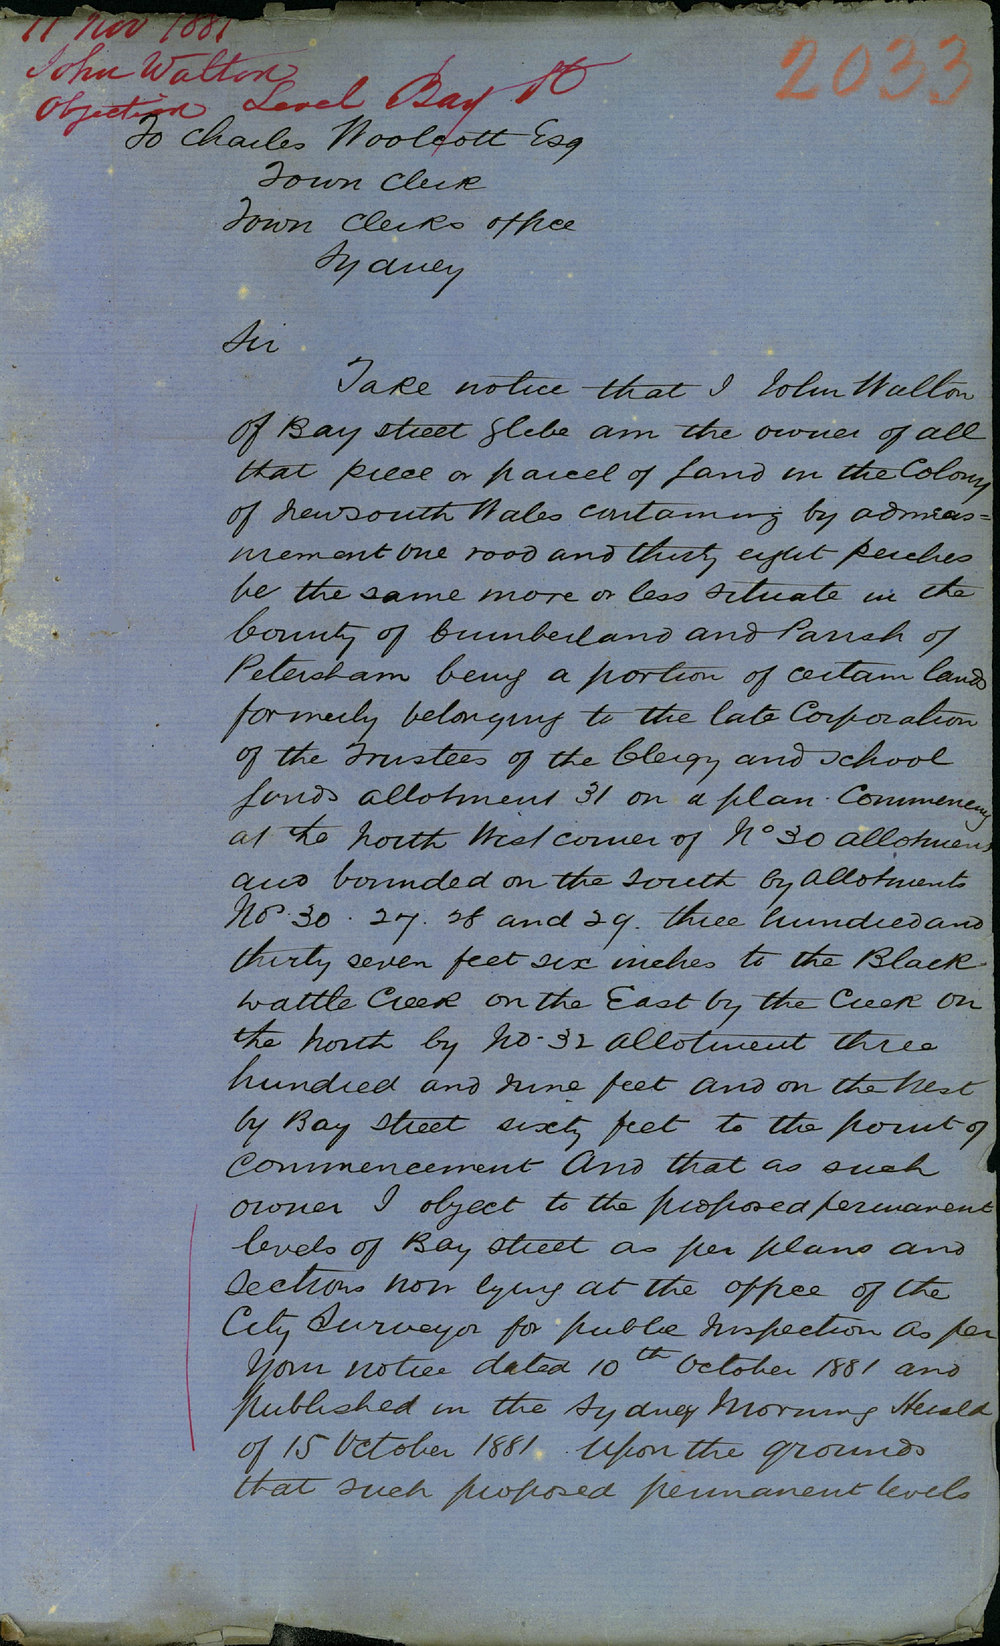 11 Nov 1881
John Walton
Objection Level Bay St
2033
To Charles Woolcott Esq
Town Clerk
Town Clerks office
Sydney
Sir
Take notice that I John Walton
of Bay street Glebe am the owner of all
that piece or parcel of land in the Colony
of New South Wales containing by admeas=
urement one rood and thirty eight perches
be the same more or less situate in the
County of Cumberland and Parish of
Petersham being a portion of certain lands
formerly belonging to the late Corporation
of the Trustees of the Clergy and School
lands allotment 31 on a plan Commencing
at the North West corner of No 30 allotment
and bounded on the South by allotments
No 30. 27. 28 and 29. three hundred and
thirty seven feet six inches to the Black
wattle Creek on the East by the Creek on
the North by No. 32 allotment three
hundred and nine feet and on the West
by Bay Street sixty feet to the point of
commencement And that as such
owner I object to the proposed permanent
levels of Bay street as per plans and
Sections now lying at the office of the
City Surveyor for public Inspection as per
Your notice dated 10th October 1881 and
published in the Sydney Morning Herald
of 15 October 1881. Upon the grounds
that such proposed permanent levels